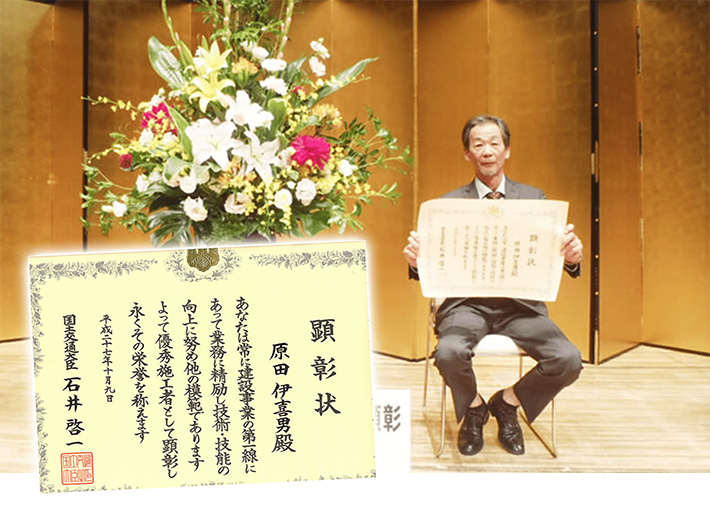 顕彰状
原田 伊喜男殿
あなたは常に建設事業の第一線に
あって業務に精励し技術・技能の
向上に努め他の模範であります
よって優秀施工者として顕彰し
永くその栄誉を称えます
平成二十七年十月九日
国土交通大臣 石井 啓一
顕彰状
原田 伊喜男殿